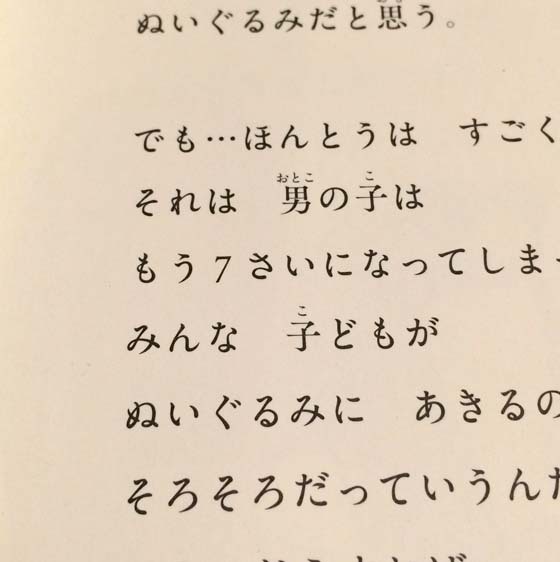 ぬいぐるみだと思う。
でも…ほんとうは　すごく
それは　男の子は
もう7さいになってしま
みんな　子どもが
ぬいぐるみに　あきるの
そろそろだっていうんだ